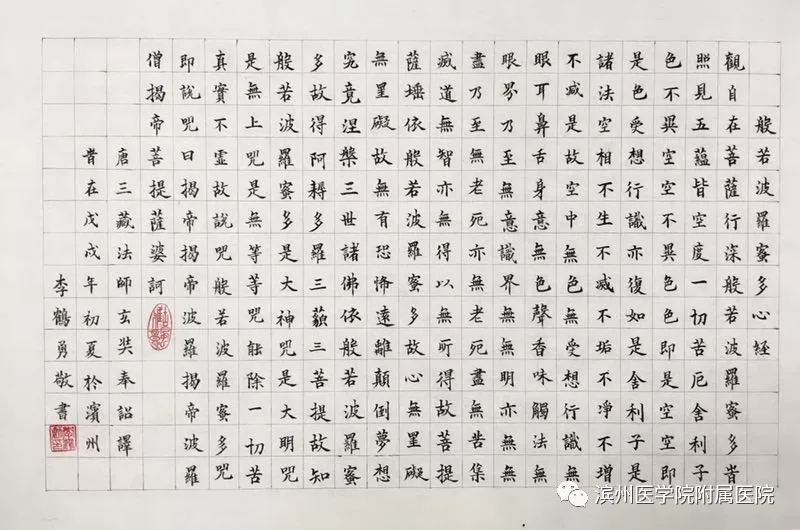 般若波羅蜜多心経
觀自在菩薩行深般若波羅蜜多旹
照見五蘊皆空度一切苦厄舍利子
色不異空空不異色色即是空空即
是色受想行識亦復如是舍利子是
諸法空相不生不滅不垢不淨不增
不減是故空中無色無受想行識無
眼耳鼻舌身意無色聲香味觸法無
眼界乃至無意識界無無明亦無無
盡乃至無老死亦無老死盡無苦集
滅道無智亦無得以無所得故菩提
薩埵依般若波羅蜜多故心無罣礙
無罣礙故無有恐怖遠離顛倒夢想
究竟涅槃三世諸佛依般若波羅蜜
多故得阿耨多羅三藐三菩提故知
般若波羅蜜多是大神咒是大明咒
是無上咒是無等等咒能除一切苦
真實不虛故說咒般若波羅蜜多咒
即說咒曰揭帝揭帝波羅揭帝波羅
僧揭帝菩提薩婆訶
唐三藏法師玄奘奉詔譯
旹在戊戌年初夏於濱州
李鶴勇敬書
滨州医学院附属医院